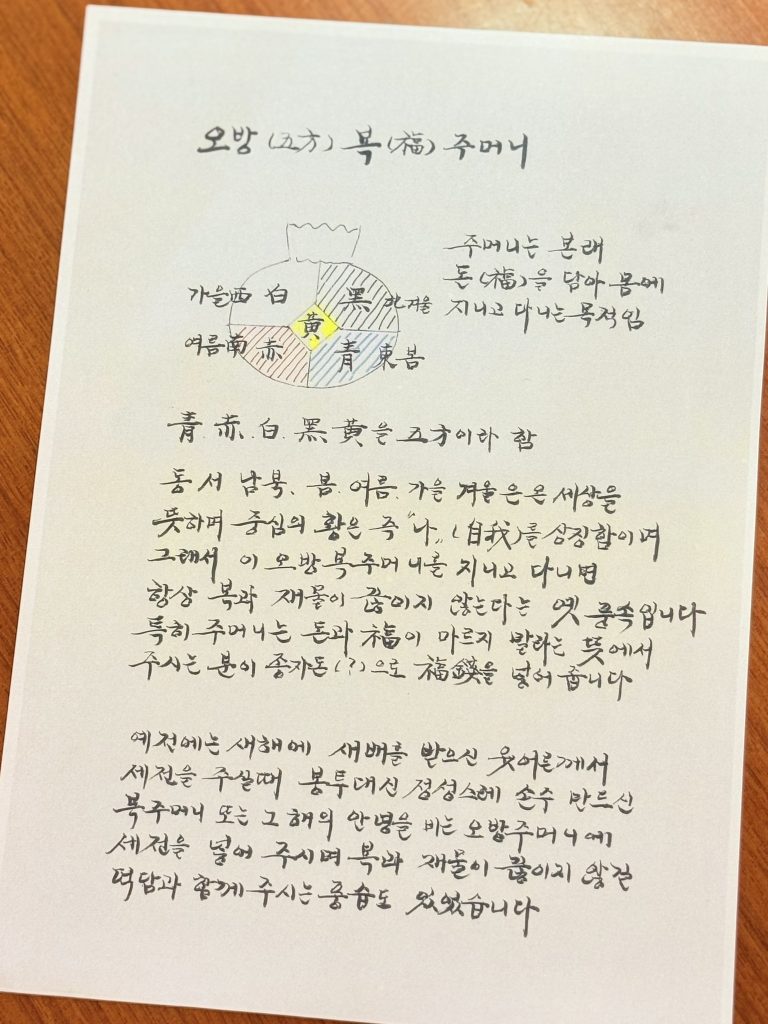 오방 (五方) 복(福) 주머니
주머니는 본래
돈(福)을 담아 몸에
지니고 다니는 목적임
가을西 白 黑 北겨울
黃
여름南 赤 青 東봄
青.赤.白.黑.黃을 五方이라 함
동서남북, 봄.여름.가을 겨울은 온 세상을
뜻하며 중심의 황은 즉 "나" (自我)를 상징함이며
그래서 이 오방복주머니를 지니고 다니면
항상 복과 재물이 끊이지 않는다는 옛 풍속입니다
특히 주머니는 돈과 福이 마르지 말라는 뜻에서
주시는 분이 종자돈(?)으로 福錢을 넣어 줍니다
예전에는 새해에 새배를 받으신 웃어른께서
세전을 주실때 봉투대신 정성스레 손수 만드신
복주머니 또는 그 해의 안녕을 비는 오방주머니에
세전을 넣어 주시며 복과 재물이 끊이지 않길
덕담과 함께 주시는 풍습도 있었습니다